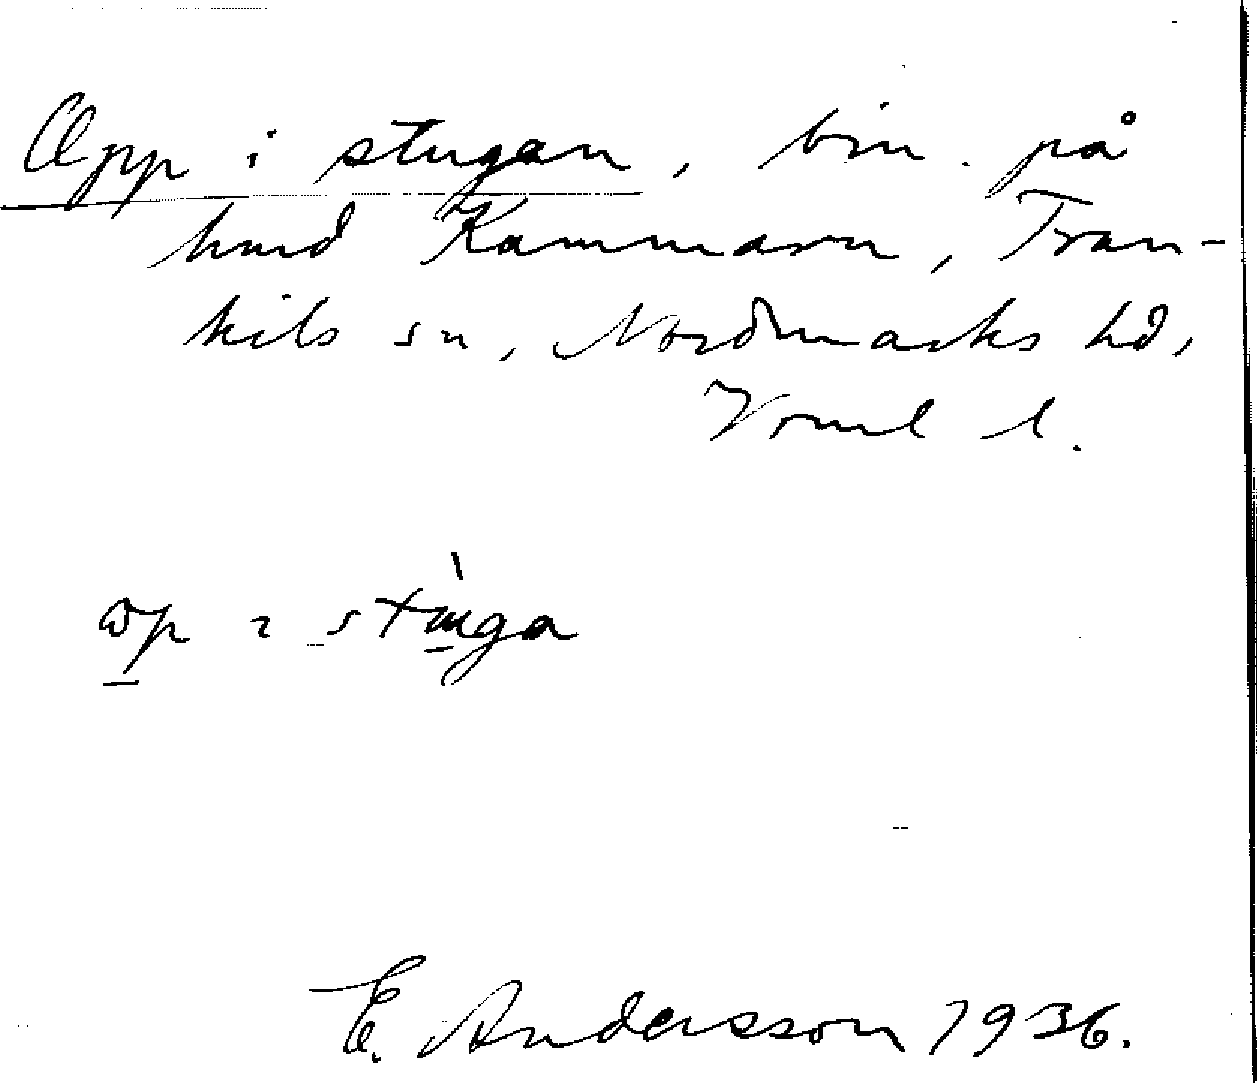 Opp i stugan, bin. på
hmd Kammarn, Tran-
kils sn, Nordmarks hd,
Vrml l.
ωp ı stu̠̇ga
E. Andersson 1936.